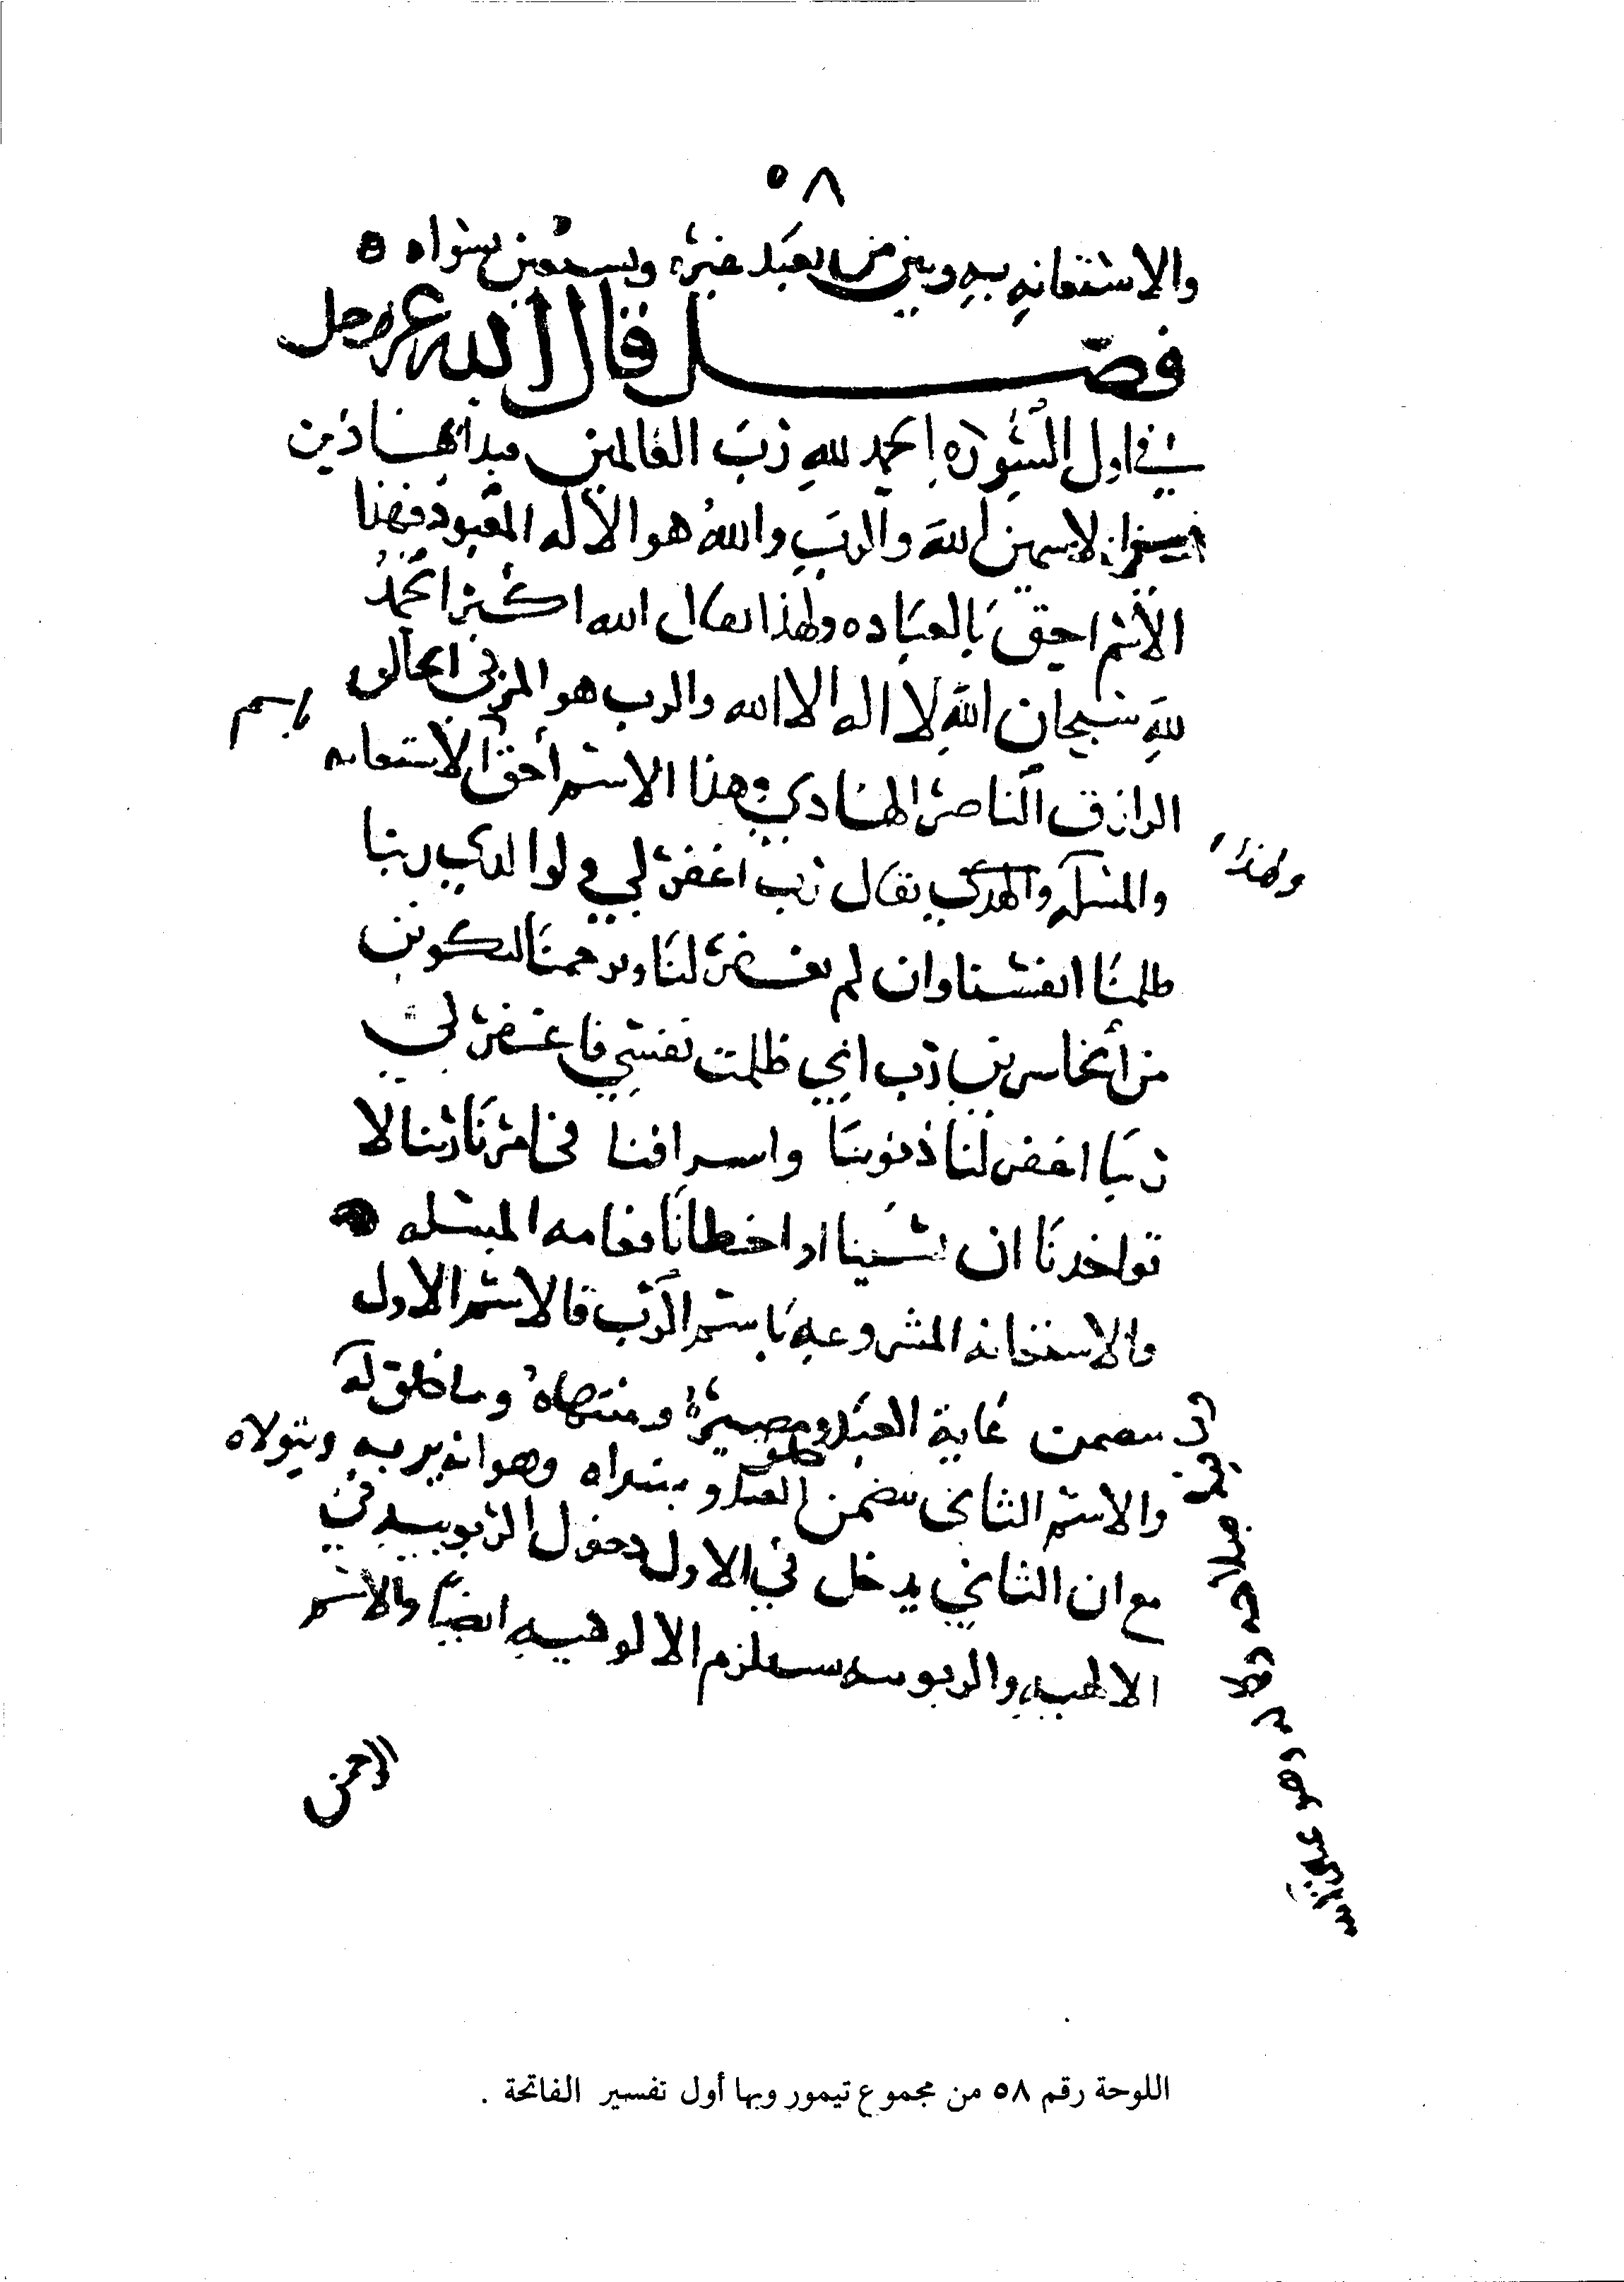 ٥٨
والاستعانه به وبين من يعبد غيره ويستعين بسواه ه
فصل قال الله عز وجل
في اول السوره الحمد لله رب العالمين فبدا بهاذين
الاسمين الله والرب والله هو الاله المعبود فهذا
الاسم احق بالعباده ولهذا يقال الله اكبر الحمد
لله سبحان الله لا اله الا الله والرب هو المربي الخالق
الرازق الناصر الهادي وهذا الاسم أحق الاستعانه
باسم
والمسله والهدي يقال رب اغفر لي ولوالدي ربنا
ولهذا
ظلمنا انفسنا وان لم تغفر لنا وترحمنا لنكونن
من الخاسرين رب اني ظلمت نفسي فاغفر لي
ربنا اغفر لنا ذنوبنا واسرافنا في امرنا ربنا لا
تواخذنا ان نسينا او اخطانا فعامه المسله
والاستغاثه المشروعه باسم الرب فالاسم الاول
يتضمن غاية العبد ومصيره ومنتهاه وما خلق له
والاسم الثاني يتضمن خلق العبد ومبتداه وهو انه يربيه ويتولاه
مع ان الثاني يدخل في الاول دخول الربوبيه في
الالهيه والربوبيه تستلزم الالوهيه ايضا والاسم
الرحمن
اللوحة رقم ٥٨ من مجموع تيمور وبها أول تفسير الفاتحة .